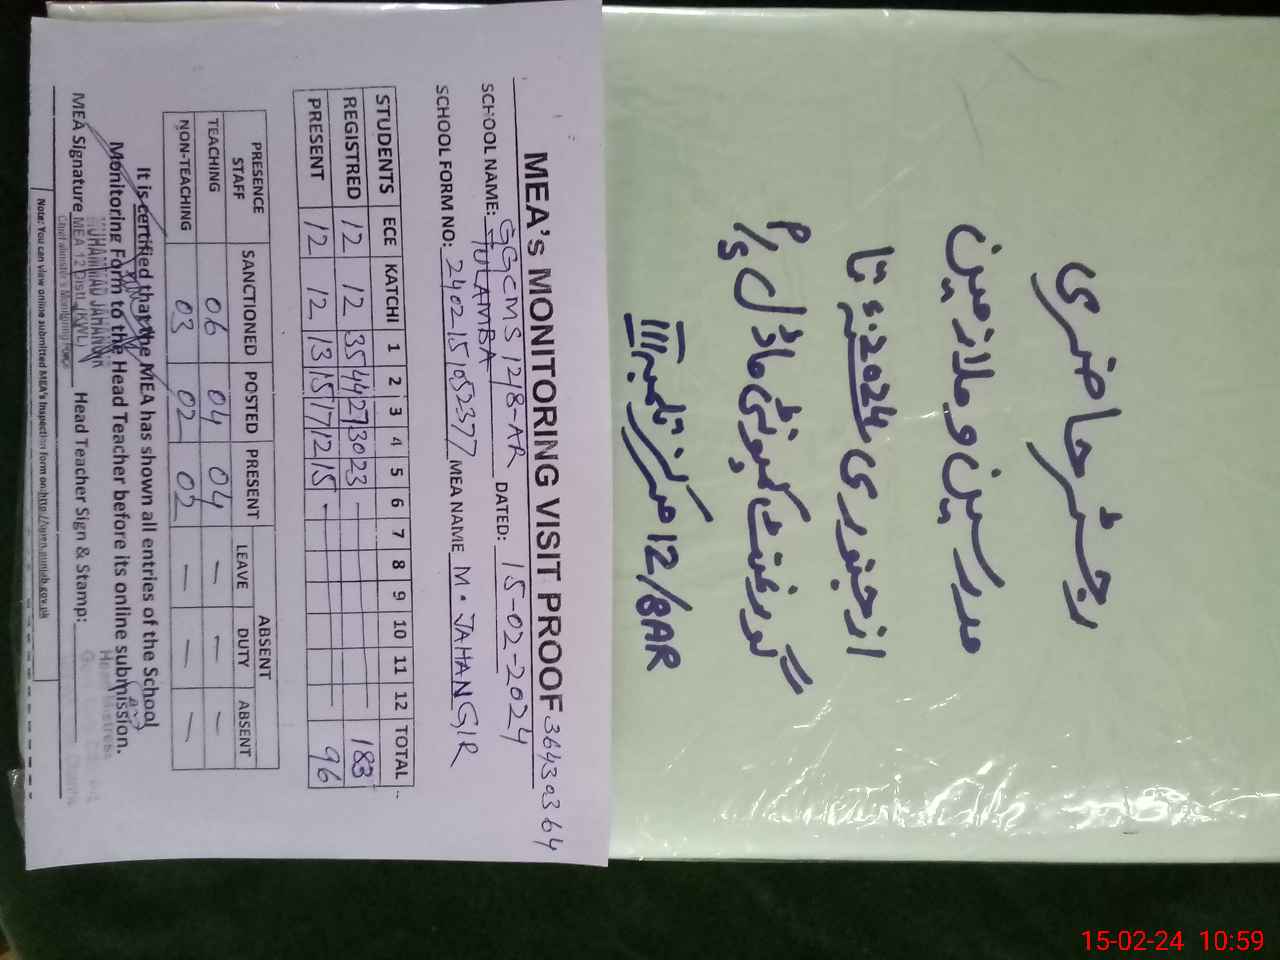 رجسٹر حاضری
مدرسین و ملازمین
از جنوری 2024ء تا
گورنمنٹ کمیونٹی ماڈل P/S
12/8AR مرکز تلمبہ III
MEA's MONITORING VISIT PROOF 36430364
SCHOOL NAME: GGCMS 12/8-AR TULAMBA DATED: 15-02-2024
SCHOOL FORM NO: 2402151052377 MEA NAME M. JAHANGIR
STUDENTS ECE KATCHI 1 2 3 4 5 6 7 8 9 10 11 12 TOTAL
REGISTRED 12 12 35 44 27 30 23 - 183
PRESENT 12 12 13 15 17 12 15 - 96
PRESENCE STAFF SANCTIONED POSTED PRESENT ABSENT
LEAVE DUTY ABSENT
TEACHING 06 04 04 — — —
NON-TEACHING 03 02 02 — — —
It is certified that the MEA has shown all entries of the School
Monitoring Form to the Head Teacher before its online submission.
MEA Signature Head Teacher Sign & Stamp:
MUHAMMAD JAHANGIR
MEA 12 Distt. (KWL)
Chief Minister's Monitoring Force
Head Mistress
Note: You can view online submitted MEA's Inspection form on: http://open.punjab.gov.pk
15-02-24 10:59